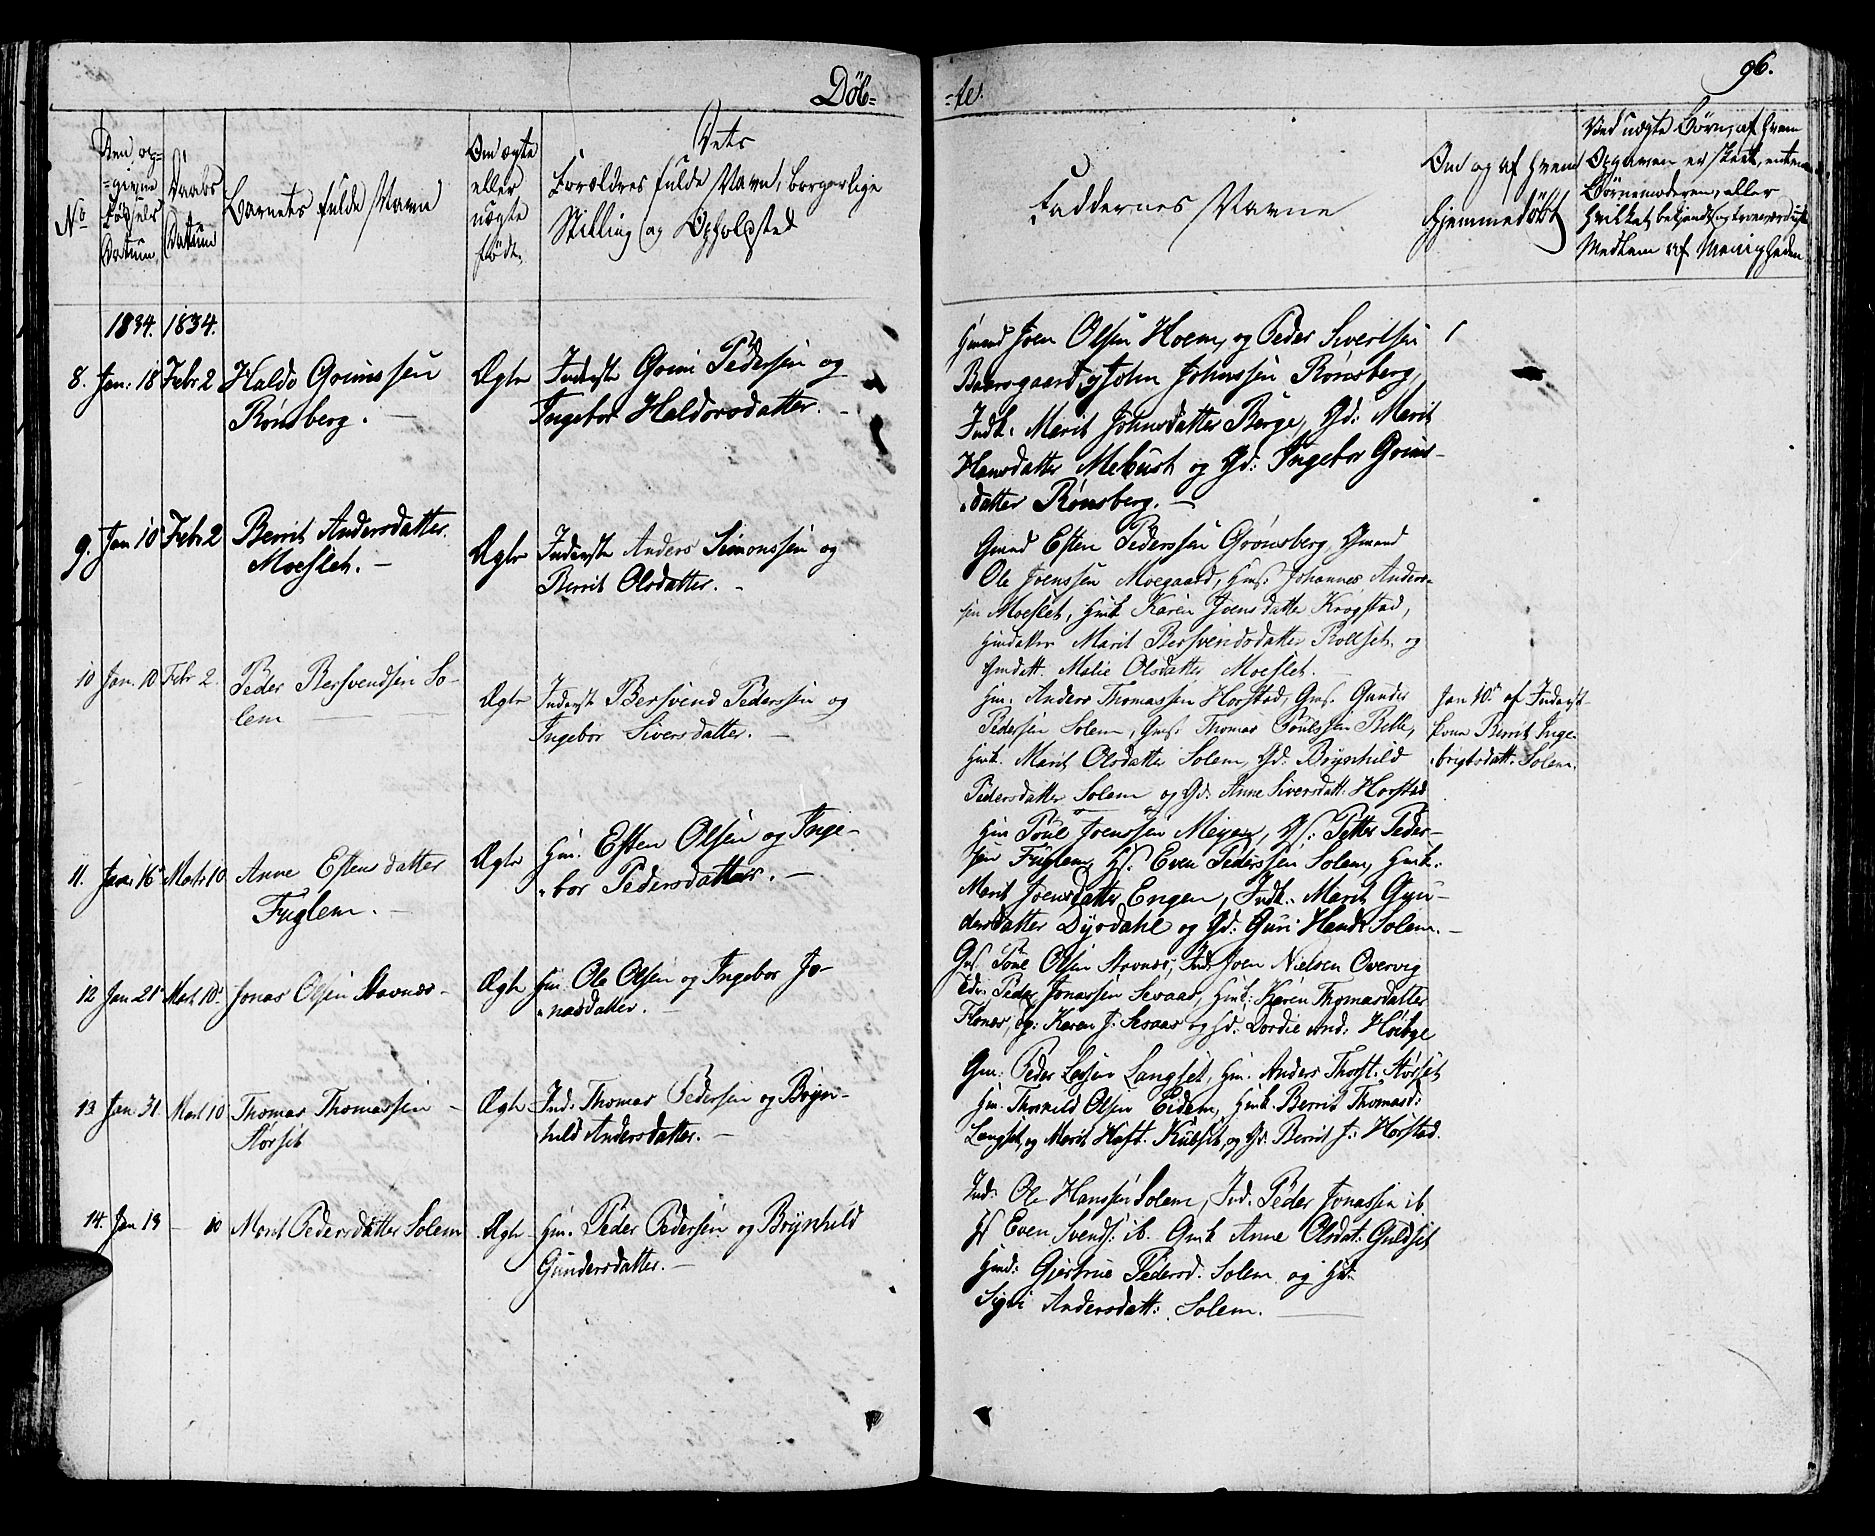 Døb-
-te.
96.
No
Den op-
-givne
Fødsels
Datum
Daabs
Datum
Barnets fulde Navn
Om ægte
eller
uægte
født.
Dets
Forældres fulde Navn, borgerlige
Stilling og Opholdsted
Faddernes Navne
Om og af hvem
hjemmedøbt
Ved uægte Børn, af hvem
Opgaven er skeet, enten
Børnemoderen, eller
hvilket bekjendt og troværdigt
Medlem af Menigheden
1834. 1834.
8. Jan: 18 Febr 2 Haldo Grimssen
Rønsberg. -
Ægte
Inderste Grim Pedersen og
Ingebor Haldorsdatter. -
Gmd Joen Olsen Hoem, og Peder Sivertsen
Baarsgaard, og John Johnssen Rønsberg,
Indk. Marit Johnsdatter Berge, Gd: Marit
Hansdatter Mebust og Gd: Ingebor Grims-
datter Rønsberg. -
9. Jan 10 Febr 2 Berrit Andersdatter
Moeslet. -
Ægte
Inderste Anders Simonssen og
Berrit Olsdatter. -
Gmd Esten Pederssen Grønsberg, Gmand
Ole Joenssen Moegaard, Hmf. Johannes Anders-
sen Moeslet, Hmk Karen Joensdatter Krogstad,
Marit Bersvendsdatter Rolset, og
Malie Olsdatter Moeslet.
10 Jan. 10 Febr 2. Peder Bersvendsen So-
lem
Ægte
Inderste Bersvend Pederssen og
Ingebor Siversdatter. -
Hm. Anders Thomassen Horstad, Gmf. Gunder
Pedersen Solem, Gmf. Thomas Poulssen Belle,
Hmk. Marit Olsdatter Solem, Gd: Brynhild
Pedersdatter Solem og Gd: Anne Siversdatt. Horstad
Jan 10 af Inderst-
kone Berrit Inge-
brigtsdatt. Solem.
11. Jan 16 Marts 10 Anne Estensdatter
Fuglem. -
Ægte
Hm. Esten Olsen og Inge-
bor Pedersdatter. -
Hm Poul Joenssen Meyen, Gf: Petter Peder-
sen Fuglem, Hf. Even Pederssen Solem, Hmk:
Marit Joensdatter Engen, Indk. Marit Gun-
dersdatter Dyrdahl og Gd: Guri Hansd: Solem. -
12 Jan 21 Mart. 10 Jonas Olsen Stavnes -
Ægte
Hm. Ole Olsen og Ingebor Jo-
nasdatter. -
Gmf. Poul Olsen Stavnes, Ind: Joen Nielsen Overvig
Edv: Peder Jonassen Sevaas, Hmk: Karen Thomasdatter
Flones, og: Karen J: Sevaas og Gd: Dordie And: Høibye
13 Jan 31. Mart 10 Thomas Thomassen -
Størset
Ægte
Ind: Thomas Pedersen og Bryn-
hild Andersdatter. -
Gm: Peder Larsen Langset, Hm. Anders Thorst. Størset
Hm. Thorkild Olsen Eidem, Hmk. Berrit Thomasd:
Langset, og Marit Haft. Kulset, og Gd. Berrit J: Horstad.
14. Jan 13 - 10 Marit Pedersdatter Solem
Ægte
Hm. Peder Pedersen og Brynhild
Gundersdatter. -
Ind: Ole Hanssen Solem, Ind. Peder Jonassen ib.
Hf Even Svends: ib. Gmk Anne Olsdat. Guldset
Hmd: Gjertrue Pedersd. Solem og Hd:
Sigri Andersdatt: Solem.